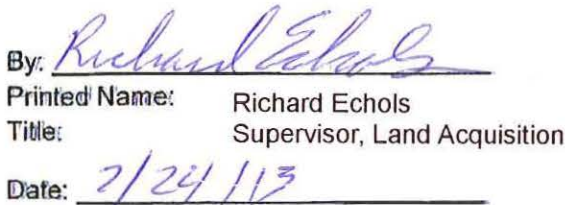 By: Richard Echols
Printed Name: Richard Echols
Title: Supervisor, Land Acquisition
Date: 7/24/13